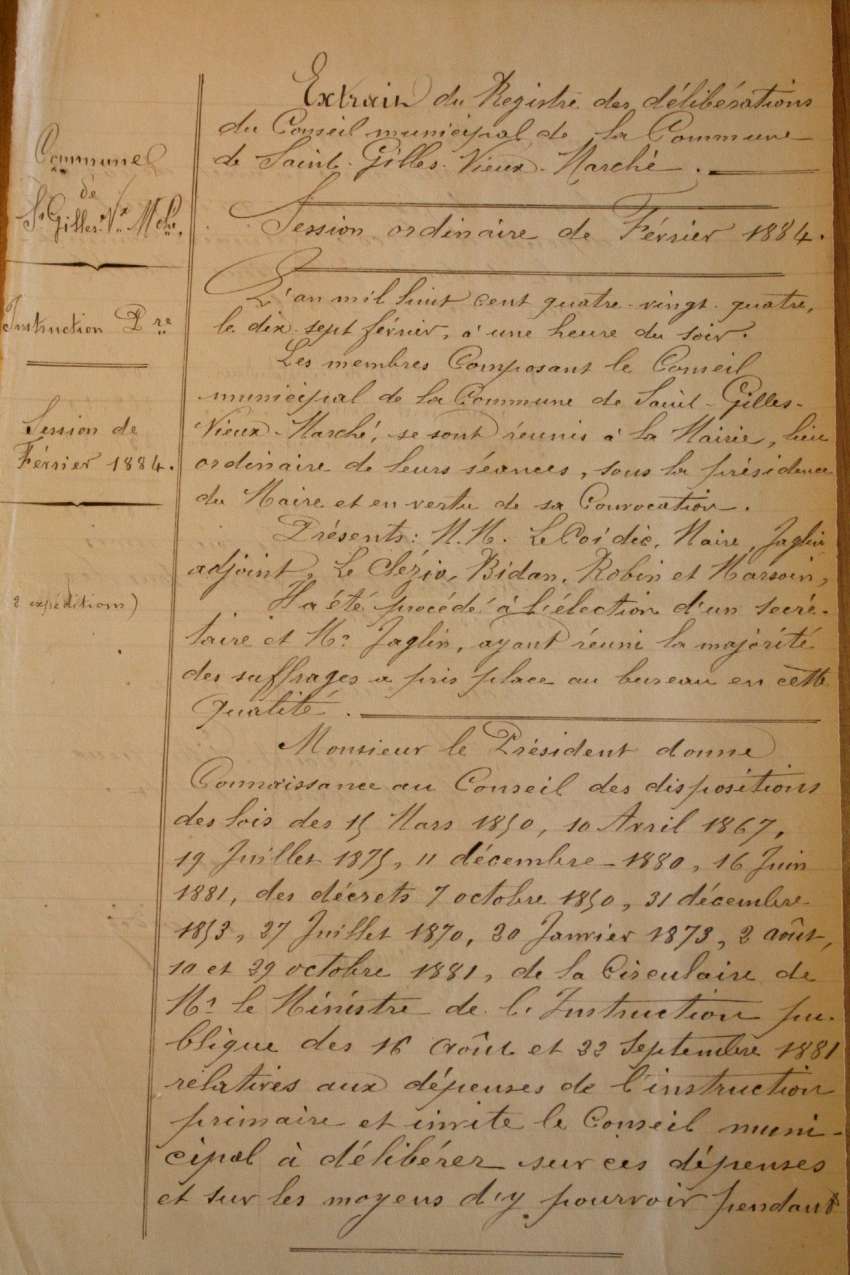 Commune
de
St Gilles Vx Mché.
Instruction Pre
Session de
Février 1884.
2 expéditions)
Extrait du Registre des délibérations
du Conseil municipal de la Commune
de Saint-Gilles-Vieux-Marché.
Session ordinaire de Février 1884.
L'an mil huit cent quatre-vingt-quatre,
le dix-sept février, à une heure du soir.
Les membres Composant le Conseil
municipal de la Commune de Saint-Gilles-
Vieux-Marché, se sont réunis à la Mairie, lieu
ordinaire de leurs séances, sous la présidence
du Maire et en vertu de sa Convocation.
Présents: M.M. Le Coïdic, Maire, Jaglin
adjoint, Le Clézio, Bidan, Robin et Marsoin,
Il a été procédé à l'élection d'un secré-
taire et Mr Jaglin, ayant réuni la majorité
des suffrages a pris place au bureau en cette
qualité.
Monsieur le Président donne
Connaissance au Conseil des dispositions
des lois des 15 Mars 1850, 10 Avril 1867,
19 Juillet 1875, 11 décembre 1880, 16 Juin
1881, des décrets 7 octobre 1850, 31 décembre
1853, 27 Juillet 1870, 20 Janvier 1873, 2 août,
10 et 29 octobre 1881, de la Circulaire de
Mr le Ministre de l'Instruction pu-
blique des 16 août et 22 Septembre 1881
relatives aux dépenses de l'instruction
primaire et invite le Conseil muni-
cipal à délibérer sur ces dépenses
et sur les moyens d'y pourvoir pendant